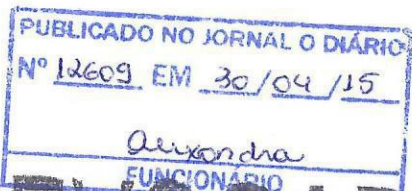 PUBLICADO NO JORNAL O DIÁRIO
Nº 12609 EM 30/04/15
FUNCIONÁRIO